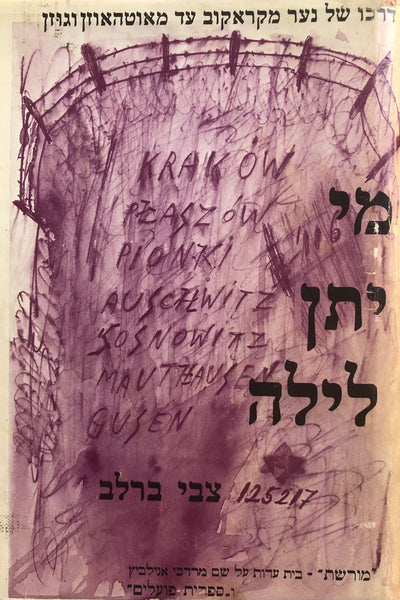 דרכו של נער מקראקוב עד מאוטהאוזן וגוזן
KRAKÓW
PŁASZÓW
PIONKI
AUSCHWITZ
SOSNOWITZ
MAUTHAUSEN
GUSEN
מי
יתן
לילה
צבי ברלב 125217
"מורשת" - בית עדות על שם מרדכי אנילביץ
ו"ספרית פועלים"